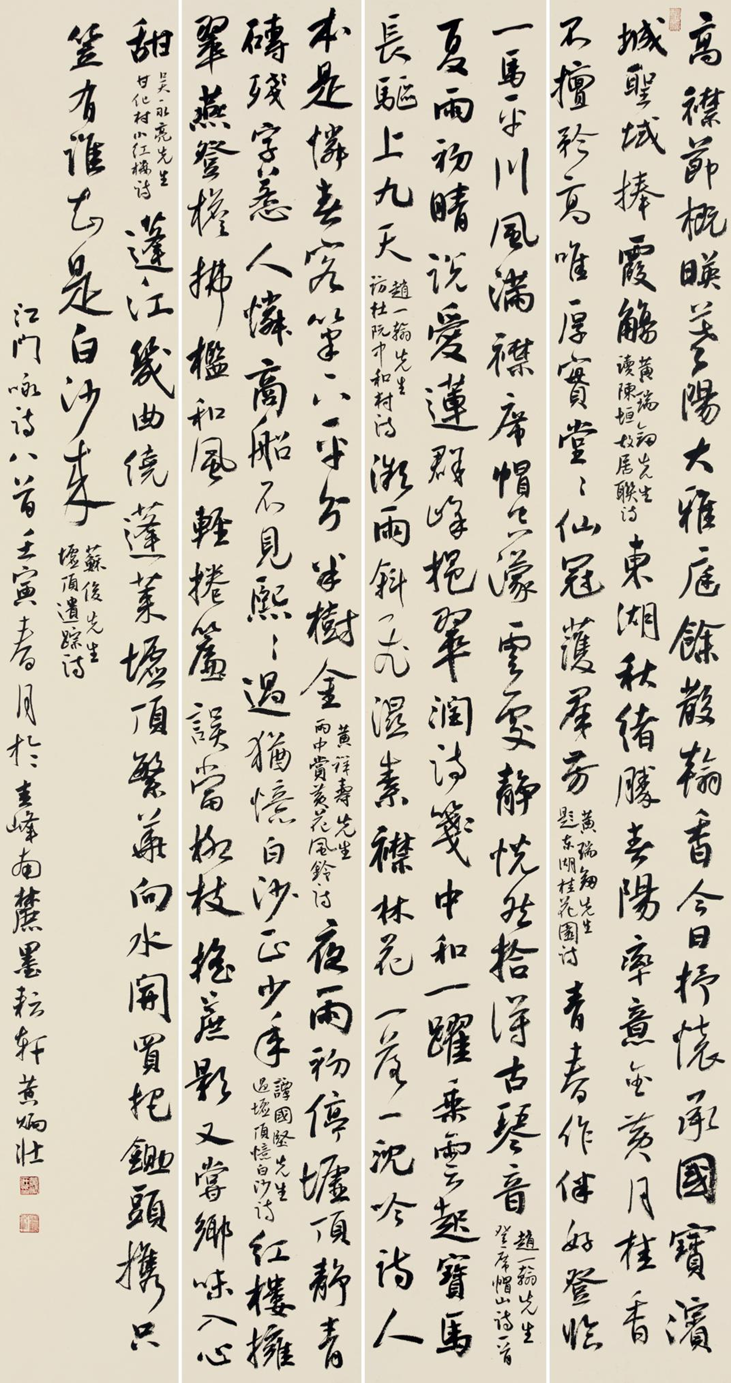 高襟節概暎荖陽大雅庭餘散翰香今日抒懷承國寶濱
城聖域捧霞觴黃瑞銦先生讀陳垣故居聯詩東湖秋緒勝春陽率意金黃月桂香
不擅矜高唯厚實堂〻仙冠護群芳黃瑞銦先生題东湖桂花園詩青春作伴好登臨
一馬平川風滿襟席帽空濛雲更靜恍然拾得古琴音趙一翰先生登席帽山詩一首
夏雨初晴說愛蓮群峰挹翠潤詩箋中和一躍乘雲起寶馬
長驅上九天趙一翰先生訪杜阮中和村詩微雨斜飛濕素襟林花一落一沈吟詩人
本是憐春客筆下平分半樹金黃祥壽先生雨中賞黃花風鈴詩夜雨初停墟頂靜青
磚殘字惹人憐商船不見熙〻過猶憶白沙正少年譚國堅先生過墟頂憶白沙詩紅樓擁
翠燕登檐拂檻和風輕捲簾誤當柳枝搖燕影又嘗鄉味入心
甜吳永亮先生甘化村小红樓詩蓬江幾曲繞蓬萊墟頂繁華向水開買把鋤頭攜只
笠有誰知是白沙來蘇俊先生墟頂遺踪詩
江門咏诗八首壬寅春月於圭峰南麓墨耘軒黃炳壯